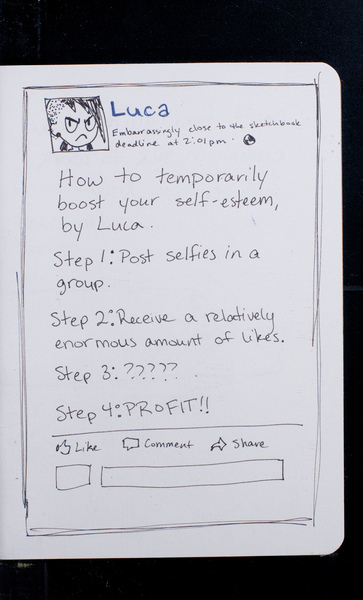 Luca
Embarrassingly close to the sketchbook
deadline at 2:01pm ·
How to temporarily
boost your self-esteem,
by Luca.
Step 1: Post selfies in a
group.
Step 2: Receive a relatively
enormous amount of likes.
Step 3: ?????
Step 4: PROFIT!!
Like Comment Share